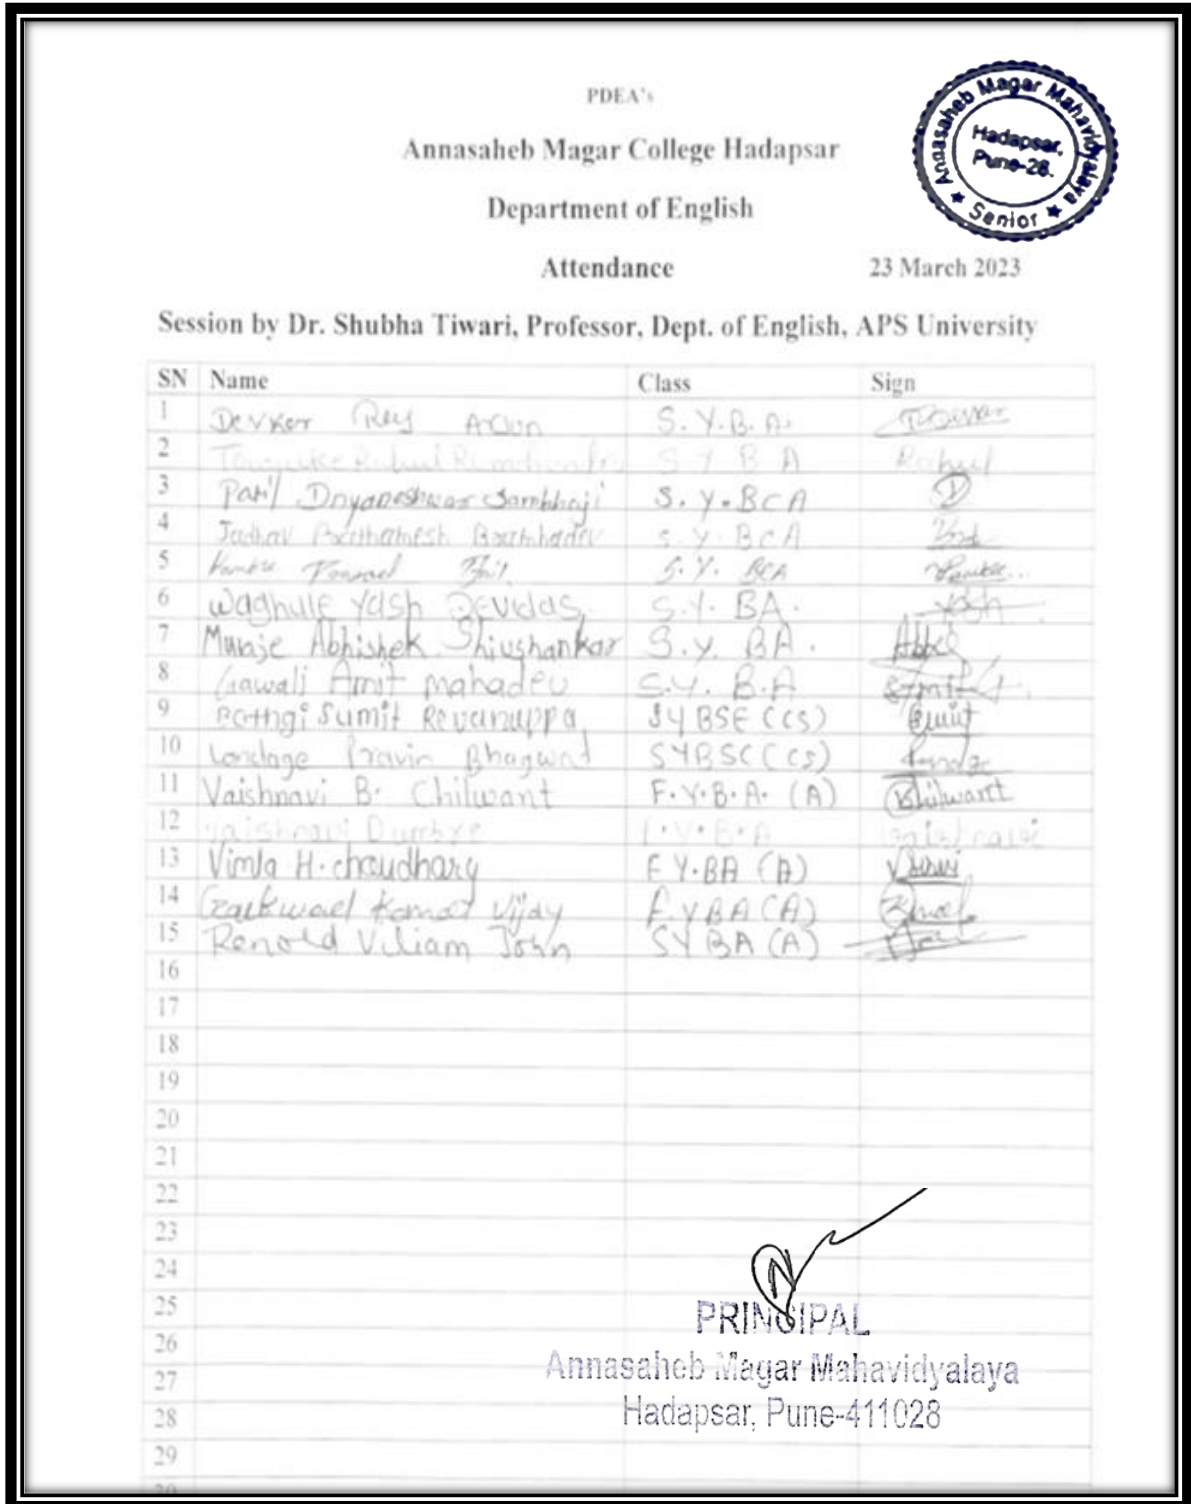 PDEA's
Annasaheb Magar College Hadapsar
Department of English
Attendance 23 March 2023
Annasaheb Magar Mahavidyalaya
Hadapsar,
Pune-28.
★ Senior ★
Session by Dr. Shubha Tiwari, Professor, Dept. of English, APS University
SN Name Class Sign
1 Devker Rey Arun S.Y.B.A.
2 S Y B A Rahul
3 Patil Dnyaneshwar Sambhaji S.Y.BCA
4 Jadhav S.Y.BCA
5 S.Y. BCA
6 Waghule Yash Devidas S.Y. BA. Yash
7 Muraje Abhishek Shivshankar S.Y. BA.
8 Gawali Amit mahadev S.Y. B.A
9 Sumit Revanuppa SYBSE (CS) Sumit
10 Londage Pravin Bhagwat SYBSC (CS)
11 Vaishnavi B. Chilwant F.Y.B.A. (A) Chilwant
12 Vaishnavi F.Y.B.A Vaishnavi
13 Vimla H. choudhary F Y.BA (A)
14 Gaikwad Komal Vijay F.YBA (A)
15 Renold Viliam John SYBA (A)
16
17
18
19
20
21
22
23
24
25
26
27
28
29
30
PRINCIPAL
Annasaheb Magar Mahavidyalaya
Hadapsar, Pune-411028